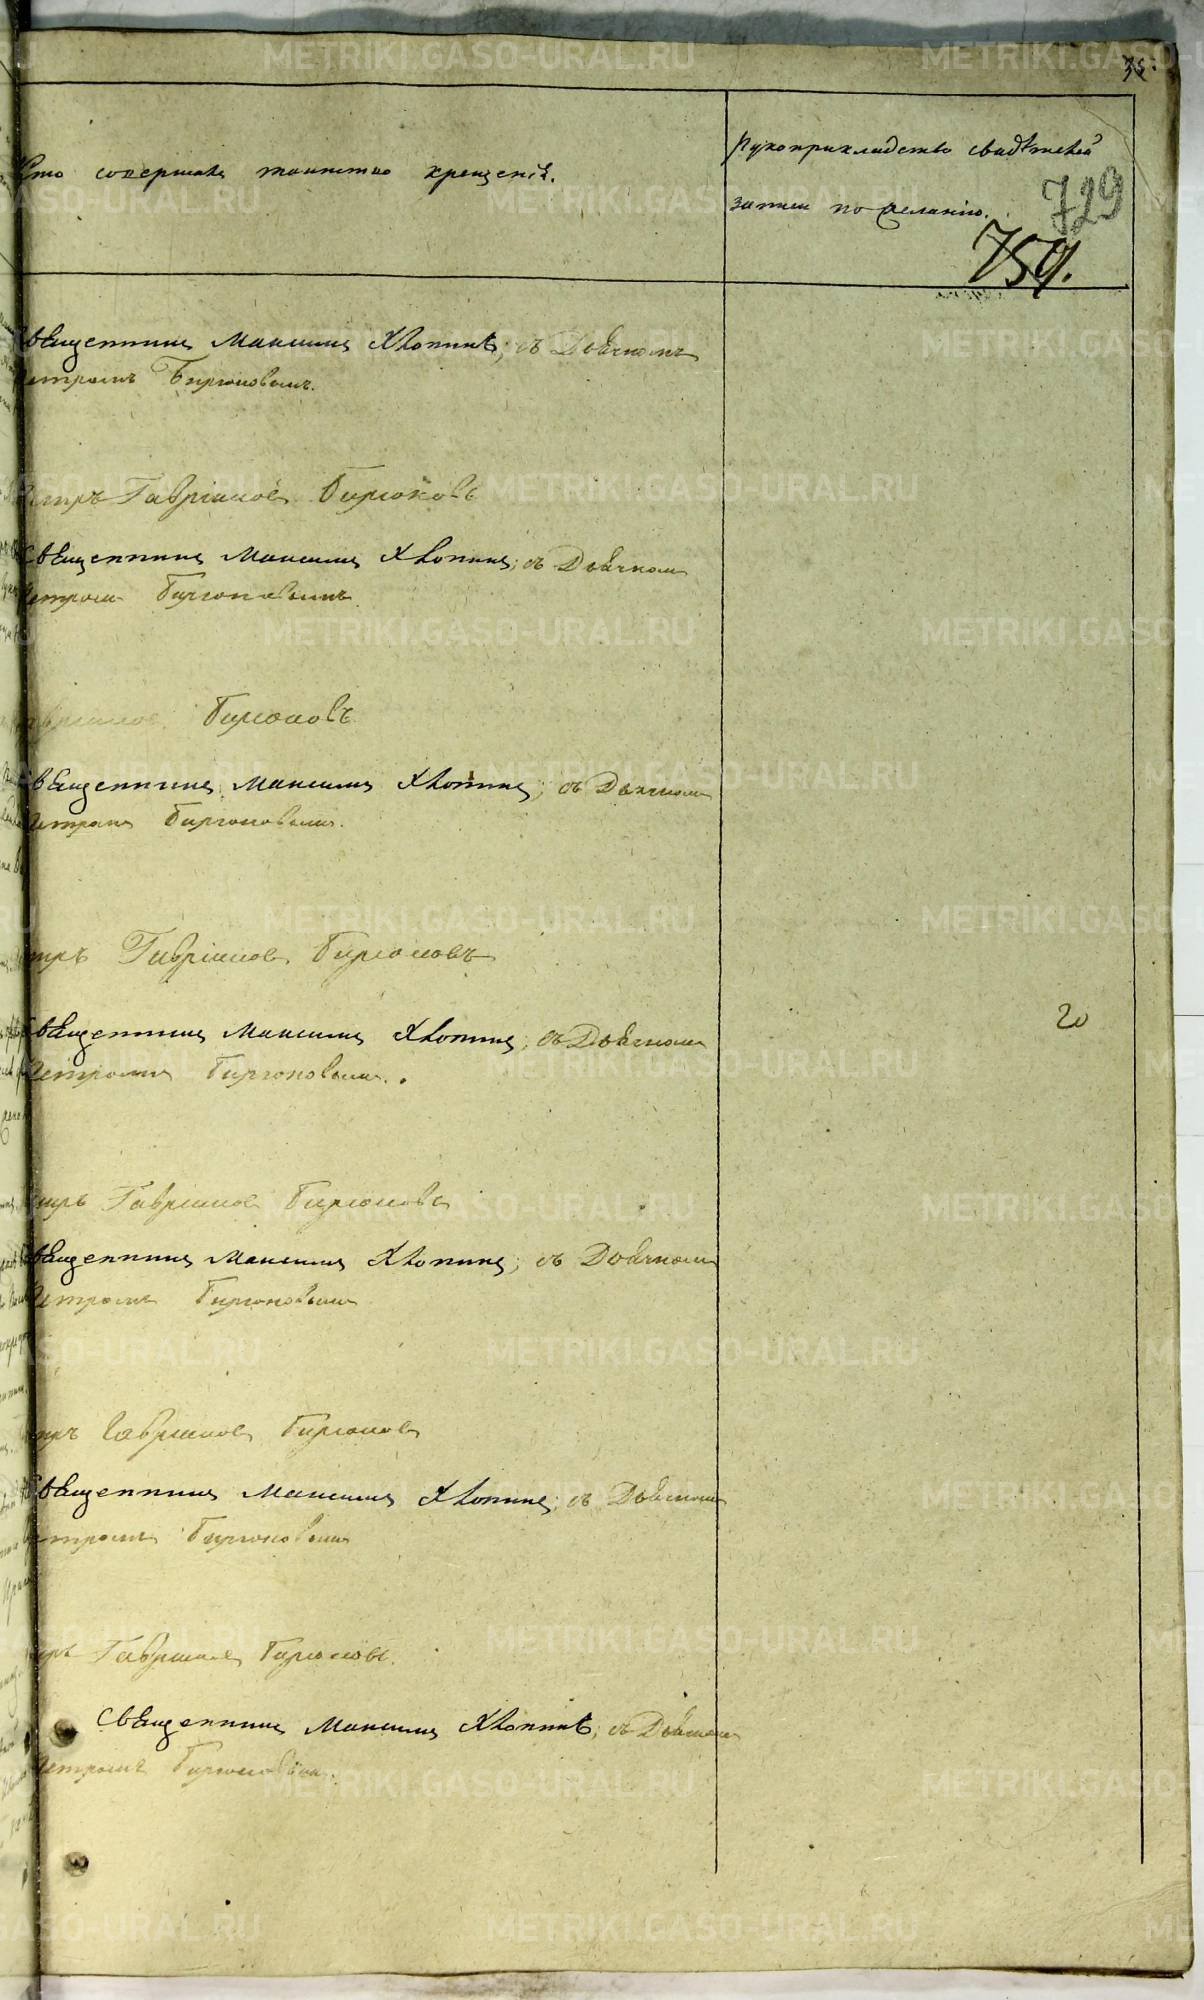 35.
Кто совершалъ таинство крещенія.
Рукоприкладство свидѣтелей
записи по желанію.
729
759.
Священникъ Максимъ Хлопинъ; съ Дьячкомъ
Петромъ Бирюковымъ.
Петръ Гавріиловъ Бирюковъ
Священникъ Максимъ Хлопинъ; съ Дьячкомъ
Петромъ Бирюковымъ
Гавріиловъ Бирюковъ
Священникъ Максимъ Хлопинъ; съ Дьячкомъ
Петромъ Бирюковымъ.
Петръ Гавріиловъ Бирюковъ
20
Священникъ Максимъ Хлопинъ; съ Дьячкомъ
Петромъ Бирюковымъ.
Петръ Гавріиловъ Бирюковъ
Священникъ Максимъ Хлопинъ; съ Дьячкомъ
Петромъ Бирюковымъ
Петръ Гавріиловъ Бирюковъ
Священникъ Максимъ Хлопинъ; съ Дьячкомъ
Петромъ Бирюковымъ
Петръ Гавріиловъ Бирюковъ.
Священникъ Максимъ Хлопинъ; съ Дьячкомъ
Петромъ Бирюковымъ.
METRIKI.GASO-URAL.RU